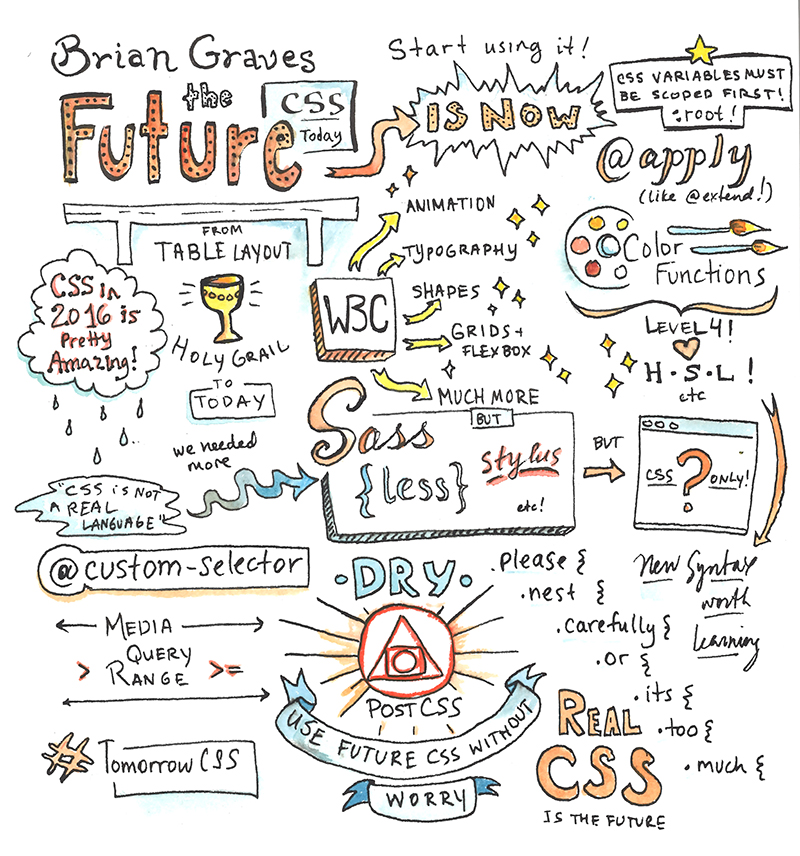 Brian Graves
the
Future
CSS
Today
Start using it!
IS NOW
CSS VARIABLES MUST
BE SCOPED FIRST!
:root!
@apply
(like @extend!)
Color
Functions
LEVEL 4!
H·S·L!
etc
FROM
TABLE LAYOUT
HOLY GRAIL
TO
TODAY
CSS in
2016 is
Pretty
Amazing!
W3C
ANIMATION
TYPOGRAPHY
SHAPES
GRIDS +
FLEXBOX
MUCH MORE
"CSS is NOT
A REAL
LANGUAGE"
we needed
more
BUT
Sass
{less}
stylus
etc!
BUT
CSS ? ONLY!
New Syntax
worth
learning
@custom-selector
MEDIA
QUERY
> RANGE >=
# Tomorrow CSS
·DRY·
POSTCSS
USE FUTURE CSS WITHOUT
WORRY
.please {
.nest {
.carefully {
.or {
.its {
.too {
.much {
REAL
CSS
IS THE FUTURE